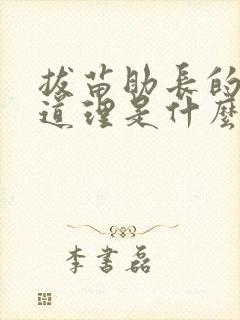 拔苗助長的
道理是什麼
李書磊